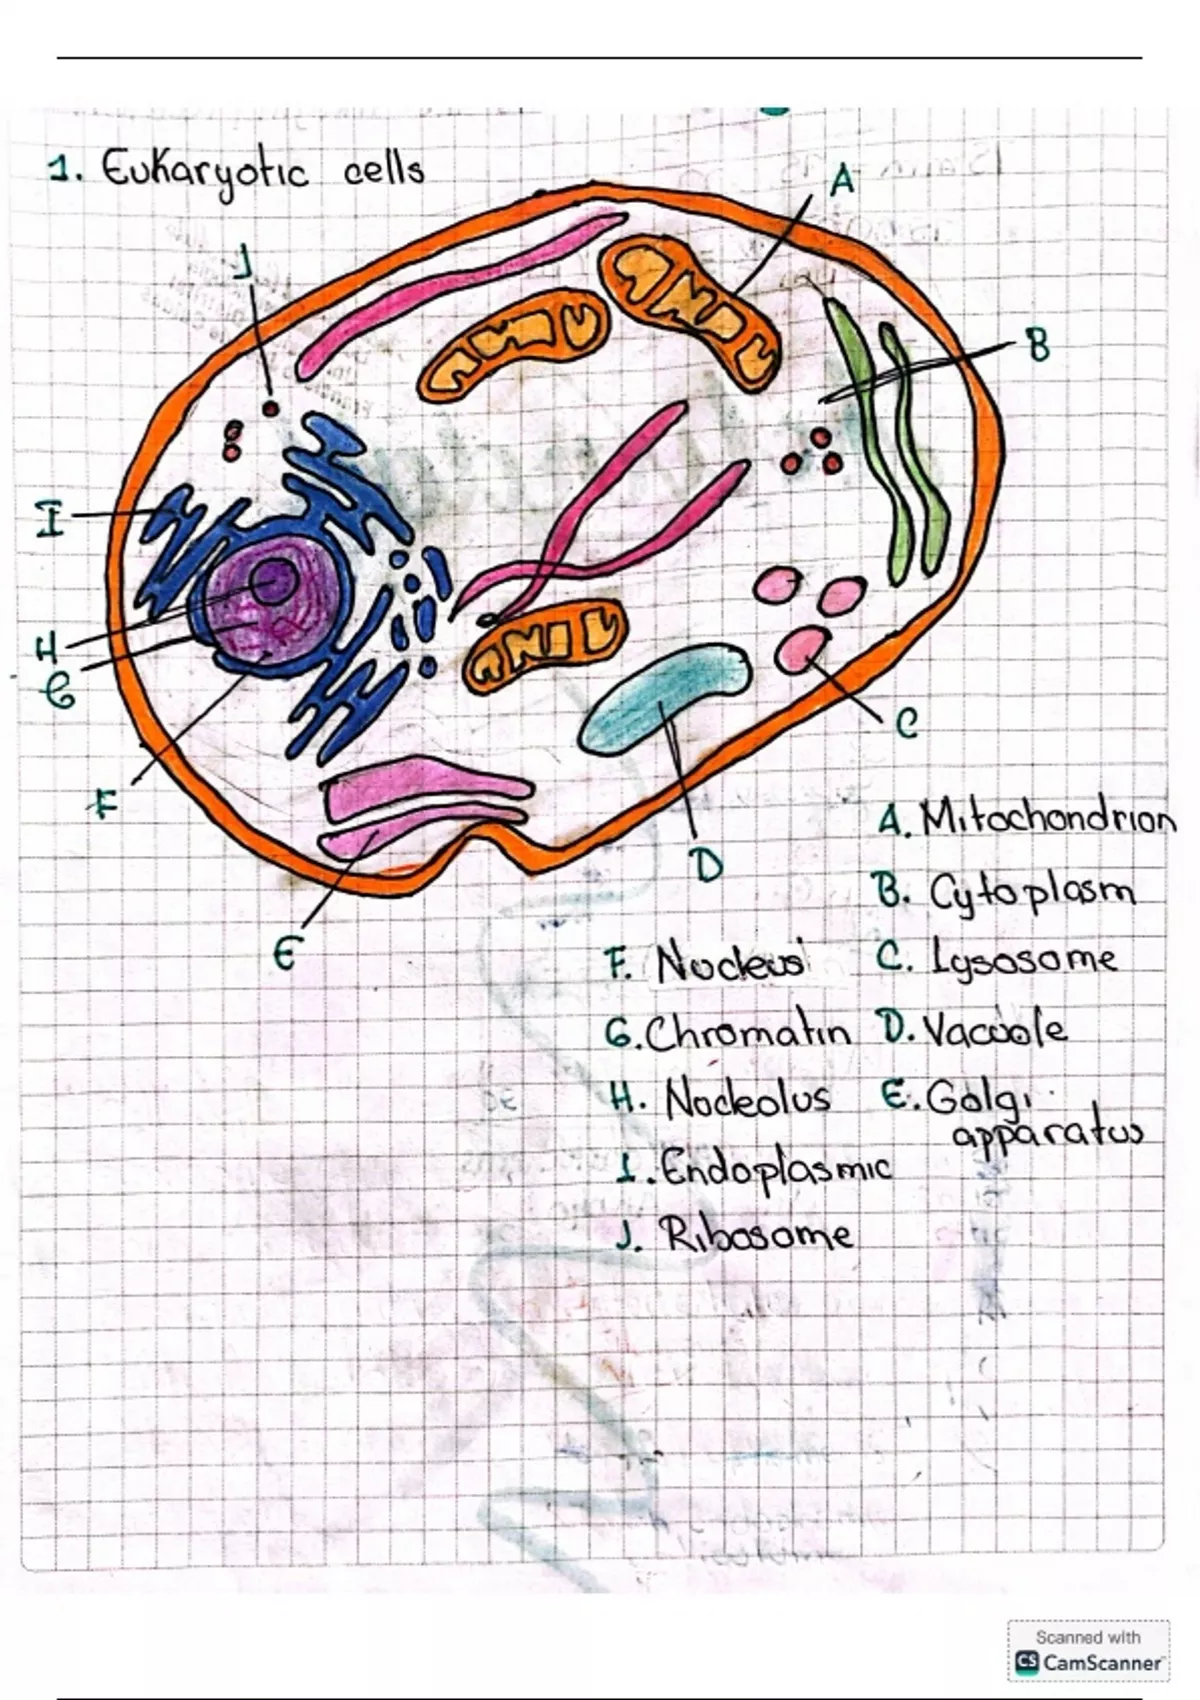 1. Eukaryotic cells
A
J
B
I
H
G
C
F
D
E
A. Mitochondrion
B. Cytoplasm
F. Nucleus C. Lysosome
G. Chromatin D. Vacuole
H. Nucleolus E. Golgi
apparatus
I. Endoplasmic
J. Ribosome
Scanned with
CS CamScanner